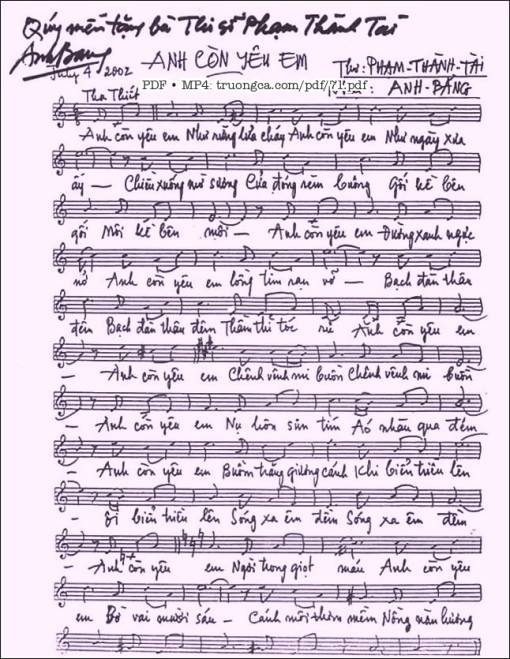 Quý mến tặng bà Thi sĩ Phạm Thành Tài
Anh Bang
July 4 2002
ANH CÒN YÊU EM
Thơ: PHẠM-THÀNH-TÀI
PDF • MP4: truongca.com/pdf/71.pdf
ANH-BẰNG
Tha Thiết
Anh còn yêu em Như rừng lửa cháy Anh còn yêu em Như ngày xưa
ấy — Chiều xuống mù sương Cửa đóng rèm buông Gối kề bên
gối Môi kề bên môi — Anh còn yêu em Đường xanh ngọc
nở Anh còn yêu em lồng tim rạn vỡ — Bạch đàn thâu
đêm Bạch đàn thâu đêm Thầm thì tóc rũ Anh còn yêu em
— Anh còn yêu em Chênh vênh mi buồn Chênh vênh mi buồn
— Anh còn yêu em Nụ hôn sim tím Áo nhàu qua đêm
— Anh còn yêu em Buồm trăng giương cánh Khi biển triều lên
— biển triều lên Sóng xa êm đềm Sóng xa êm đềm
— Anh còn yêu em Ngời trong giọt máu Anh còn yêu
em Bờ vai mười sáu — Cánh môi thơm mềm Nồng nàn hương